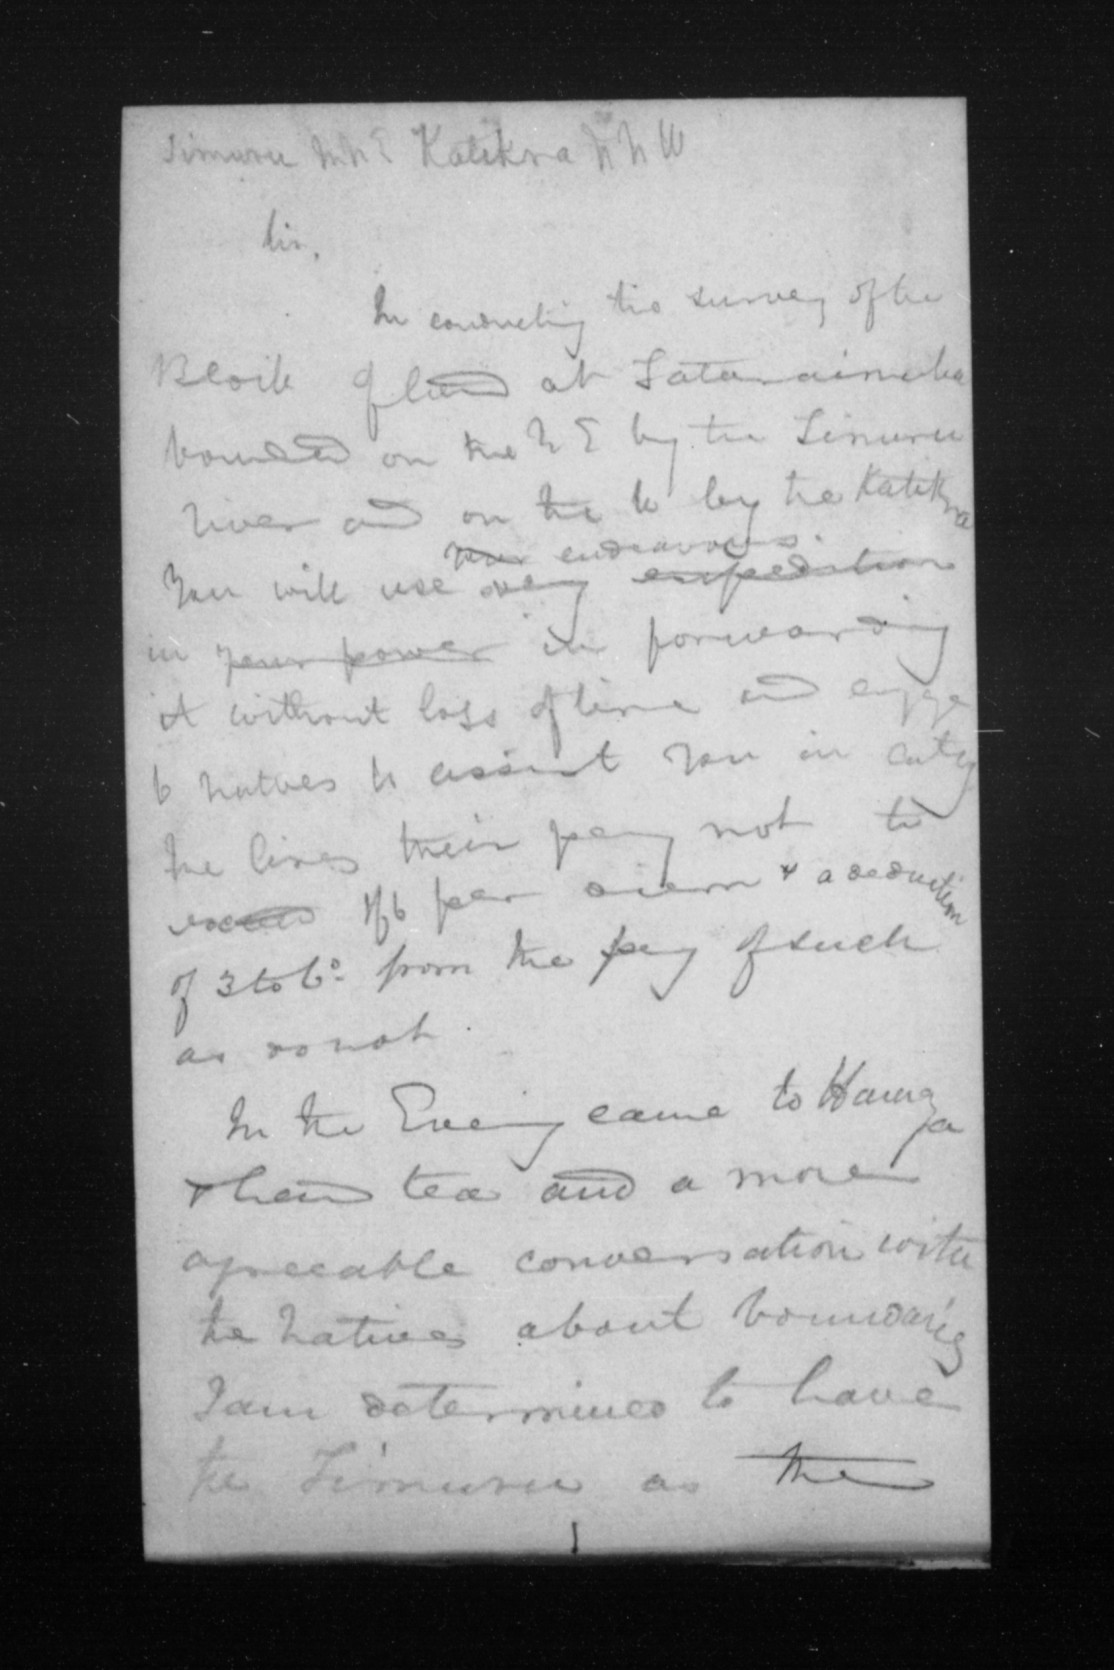 Timuru N N E Katikra N N W
Sir,
In conducting the survey of the
Block of land at Tataraimaka
bounded on the N E by the Timuru
river and on the W by the Katikra
your endeavours.
You will use every expedition
in your power in forwarding
it without loss of time and engage
6 natives to assist you in cutting
the lines their pay not to
exceed 1/6 per diem & a deduction
of 3 to 6d from the pay of such
as do not.
In the Evening came to Hauranga
& had tea and a more
agreeable conversation with
the natives about boundaries
I am determined to have
the Timuru as the